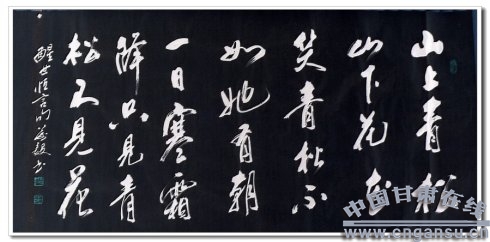 山上青松
山下花花
笑青松不
如她有朝
一日寒霜
降只见青
松不见花
醒世恒言句
中国甘肃在线
www.cngansu.cn